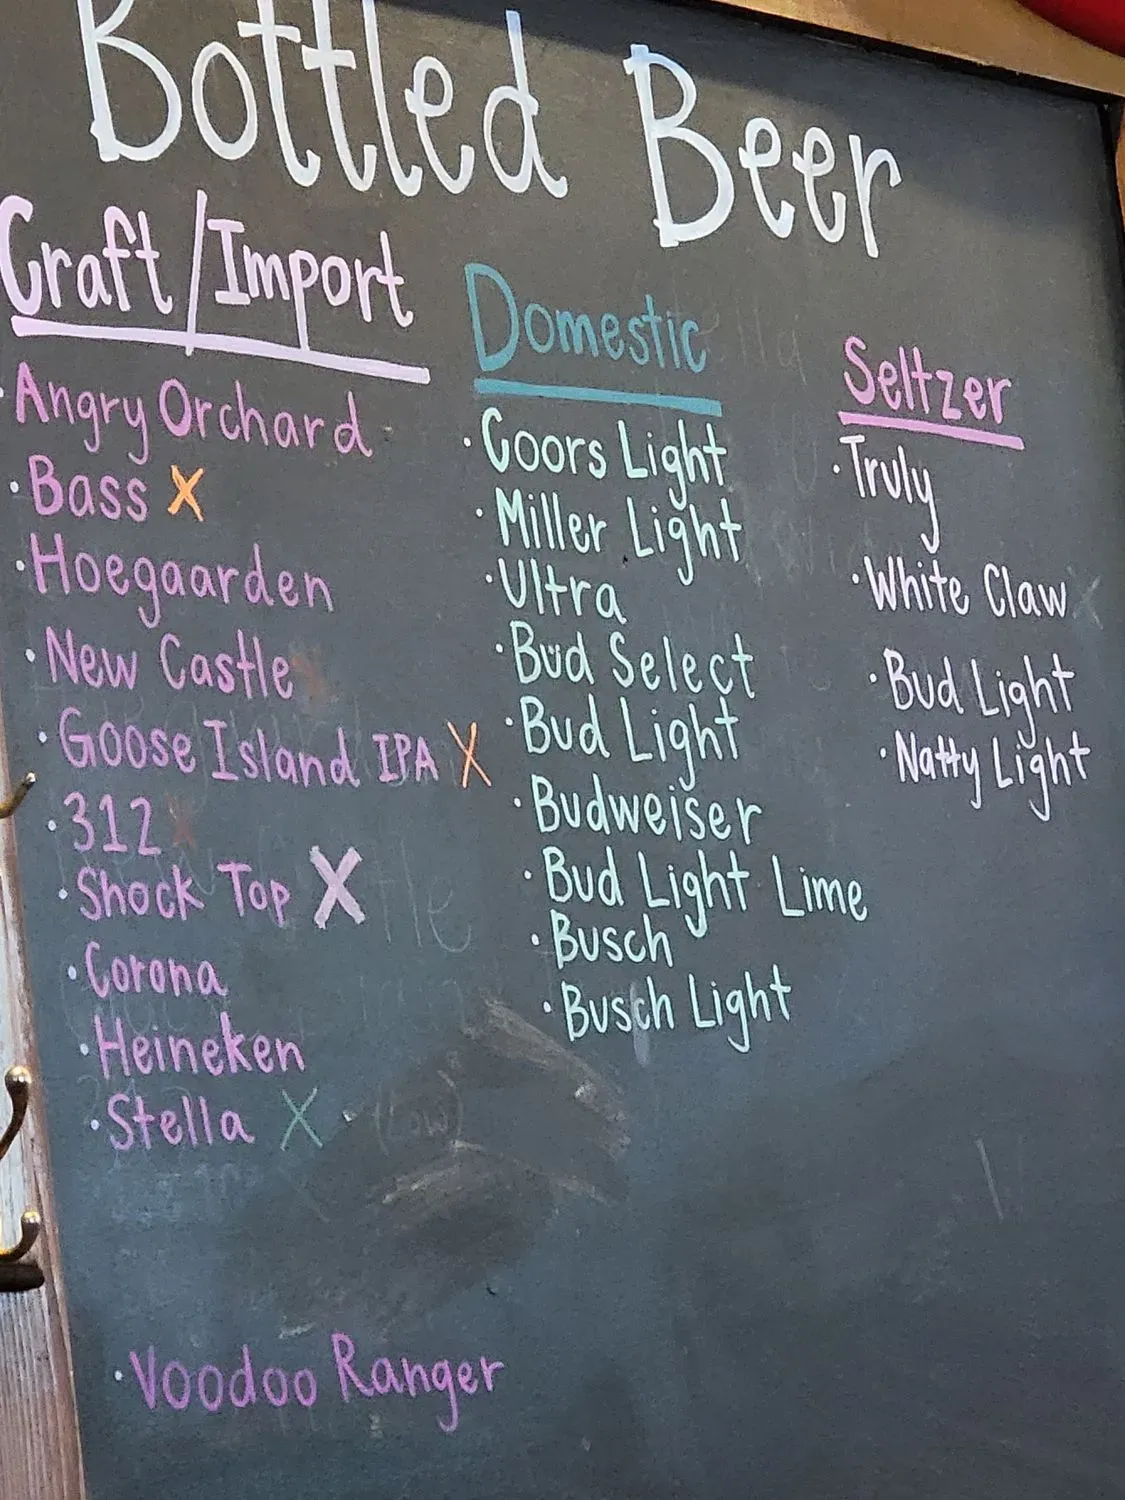 Bottled Beer
Craft/Import
Angry Orchard
· Bass X
· Hoegaarden
· New Castle
· Goose Island IPA X
· 312
· Shock Top X
· Corona
· Heineken
· Stella X
(Low)
· Voodoo Ranger
Domestic
· Coors Light
· Miller Light
· Ultra
· Bud Select
· Bud Light
· Budweiser
· Bud Light Lime
· Busch
· Busch Light
Seltzer
· Truly
· White Claw
· Bud Light
· Natty Light